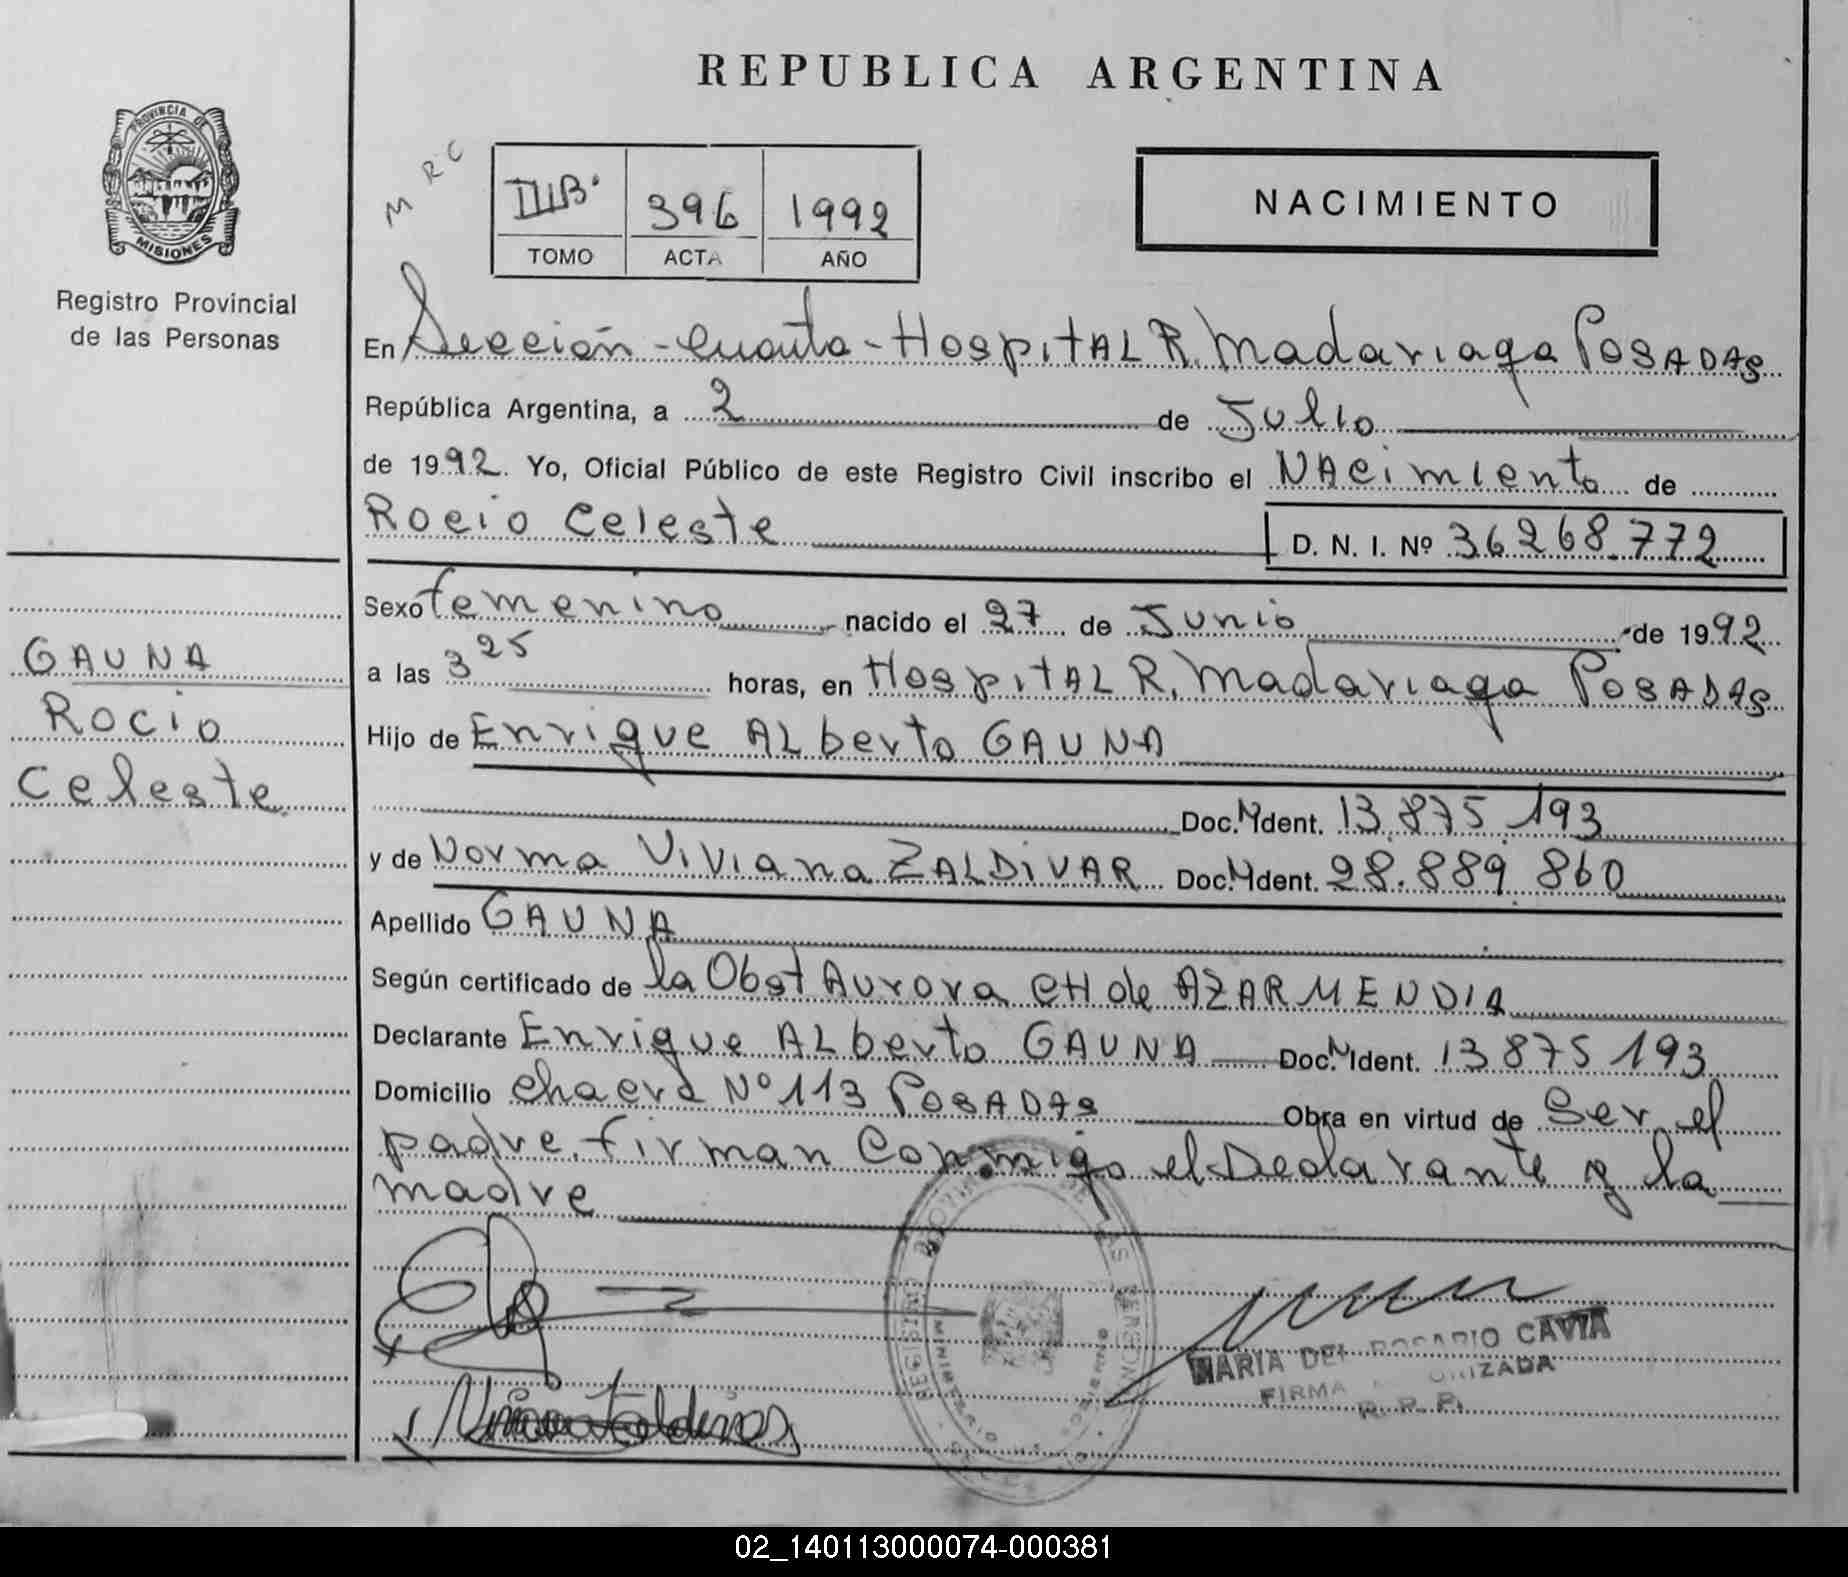 REPUBLICA ARGENTINA
PROVINCIA DE
MISIONES
Registro Provincial
de las Personas
M R C
IIIB. 396 1992
TOMO ACTA AÑO
NACIMIENTO
En Sección - Cuarta - HospitAL R. Madariaga POSADAS
República Argentina, a 2 de Julio
de 1992. Yo, Oficial Público de este Registro Civil inscribo el NAcimiento de
Rocio Celeste D. N. I. Nº 36268.772
Sexo femenino nacido el 27 de Junio de 1992
a las 3 25 horas, en HospitAL R. Madariaga POSADAS
Hijo de Enrique ALberto GAUNA
Doc. Ident. 13.875.193
y de Norma Viviana ZALDIVAR Doc. Ident. 28.889.860
Apellido GAUNA
Según certificado de la Obst Aurora CH de AZARMENDIA
Declarante Enrique ALberto GAUNA Doc. Ident. 13875193
Domicilio chacra Nº 113 POSADAS Obra en virtud de Ser el
padre. firman Conmigo el Declarante y la
madre
GAUNA
Rocio
Celeste
MARIA DEL ROSARIO CAVIA
FIRMA AUTORIZADA
R. P. P.
REGISTRO PROVINCIAL DE LAS PERSONAS
MINISTERIO DE GOBIERNO
02_140113000074-000381